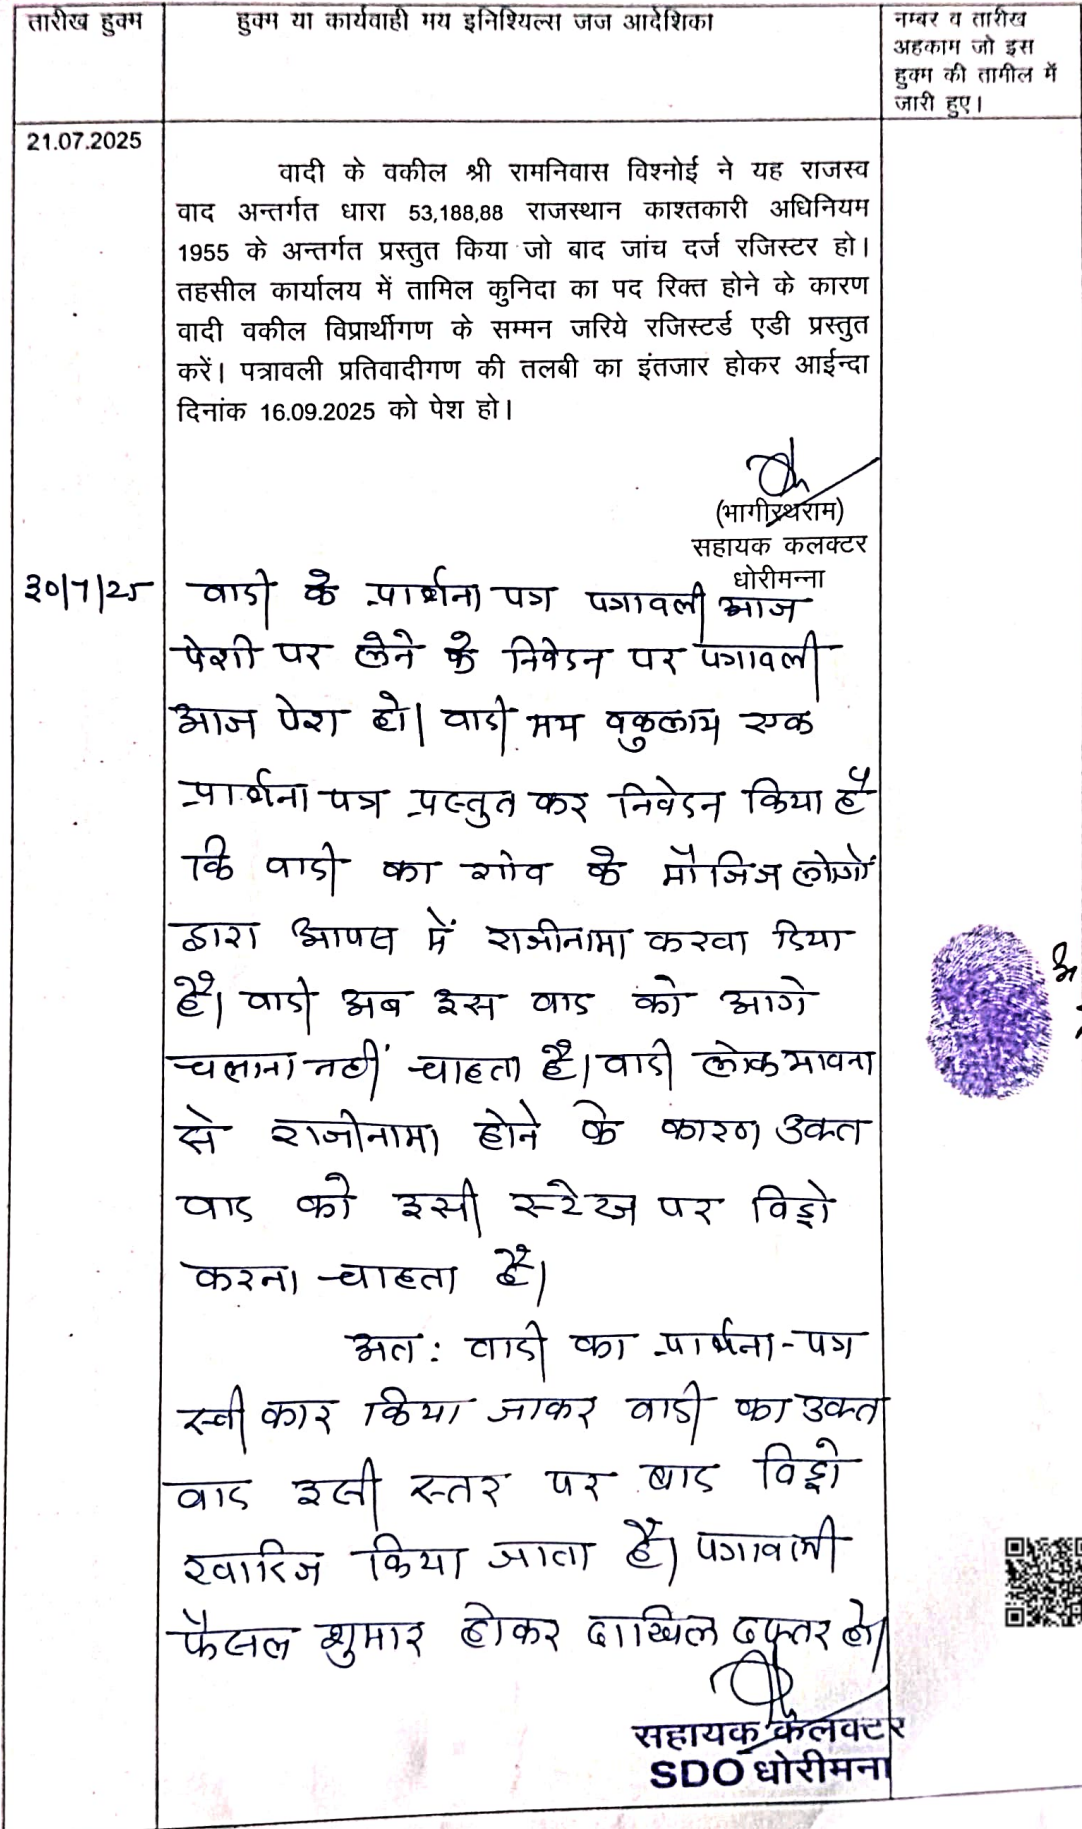 तारीख हुक्म
हुक्म या कार्यवाही मय इनिशियल्स जज आदेशिका
नम्बर व तारीख
अहकाम जो इस
हुक्म की तामील में
जारी हुए।
21.07.2025
वादी के वकील श्री रामनिवास विश्नोई ने यह राजस्व
वाद अन्तर्गत धारा 53,188,88 राजस्थान काश्तकारी अधिनियम
1955 के अन्तर्गत प्रस्तुत किया जो बाद जांच दर्ज रजिस्टर हो।
तहसील कार्यालय में तामिल कुनिदा का पद रिक्त होने के कारण
वादी वकील विप्रार्थीगण के सम्मन जरिये रजिस्टर्ड एडी प्रस्तुत
करें। पत्रावली प्रतिवादीगण की तलबी का इंतजार होकर आईन्दा
दिनांक 16.09.2025 को पेश हो।
(भागीरथराम)
सहायक कलक्टर
धोरीमन्ना
30/7/25
वादी के प्रार्थना पत्र पत्रावली आज
पेशी पर लेने के निवेदन पर पत्रावली
आज पेश हो। वादी मय वकुलाय एक
प्रार्थना पत्र प्रस्तुत कर निवेदन किया है
कि वादी का गांव के मौजिज लोगों
द्वारा आपस में राजीनामा करवा दिया
है। वादी अब इस वाद को आगे
चलाना नहीं चाहता है। वादी लोक भावना
से राजीनामा होने के कारण उक्त
वाद को इसी स्टेज पर विड्रो
करना चाहता है।
अत: वादी का प्रार्थना-पत्र
स्वीकार किया जाकर वादी का उक्त
वाद इसी स्तर पर बाद विड्रो
खारिज किया जाता है। पत्रावली
फैसल शुमार होकर दाखिल दफ्तर हो।
सहायक कलक्टर
SDO धोरीमना